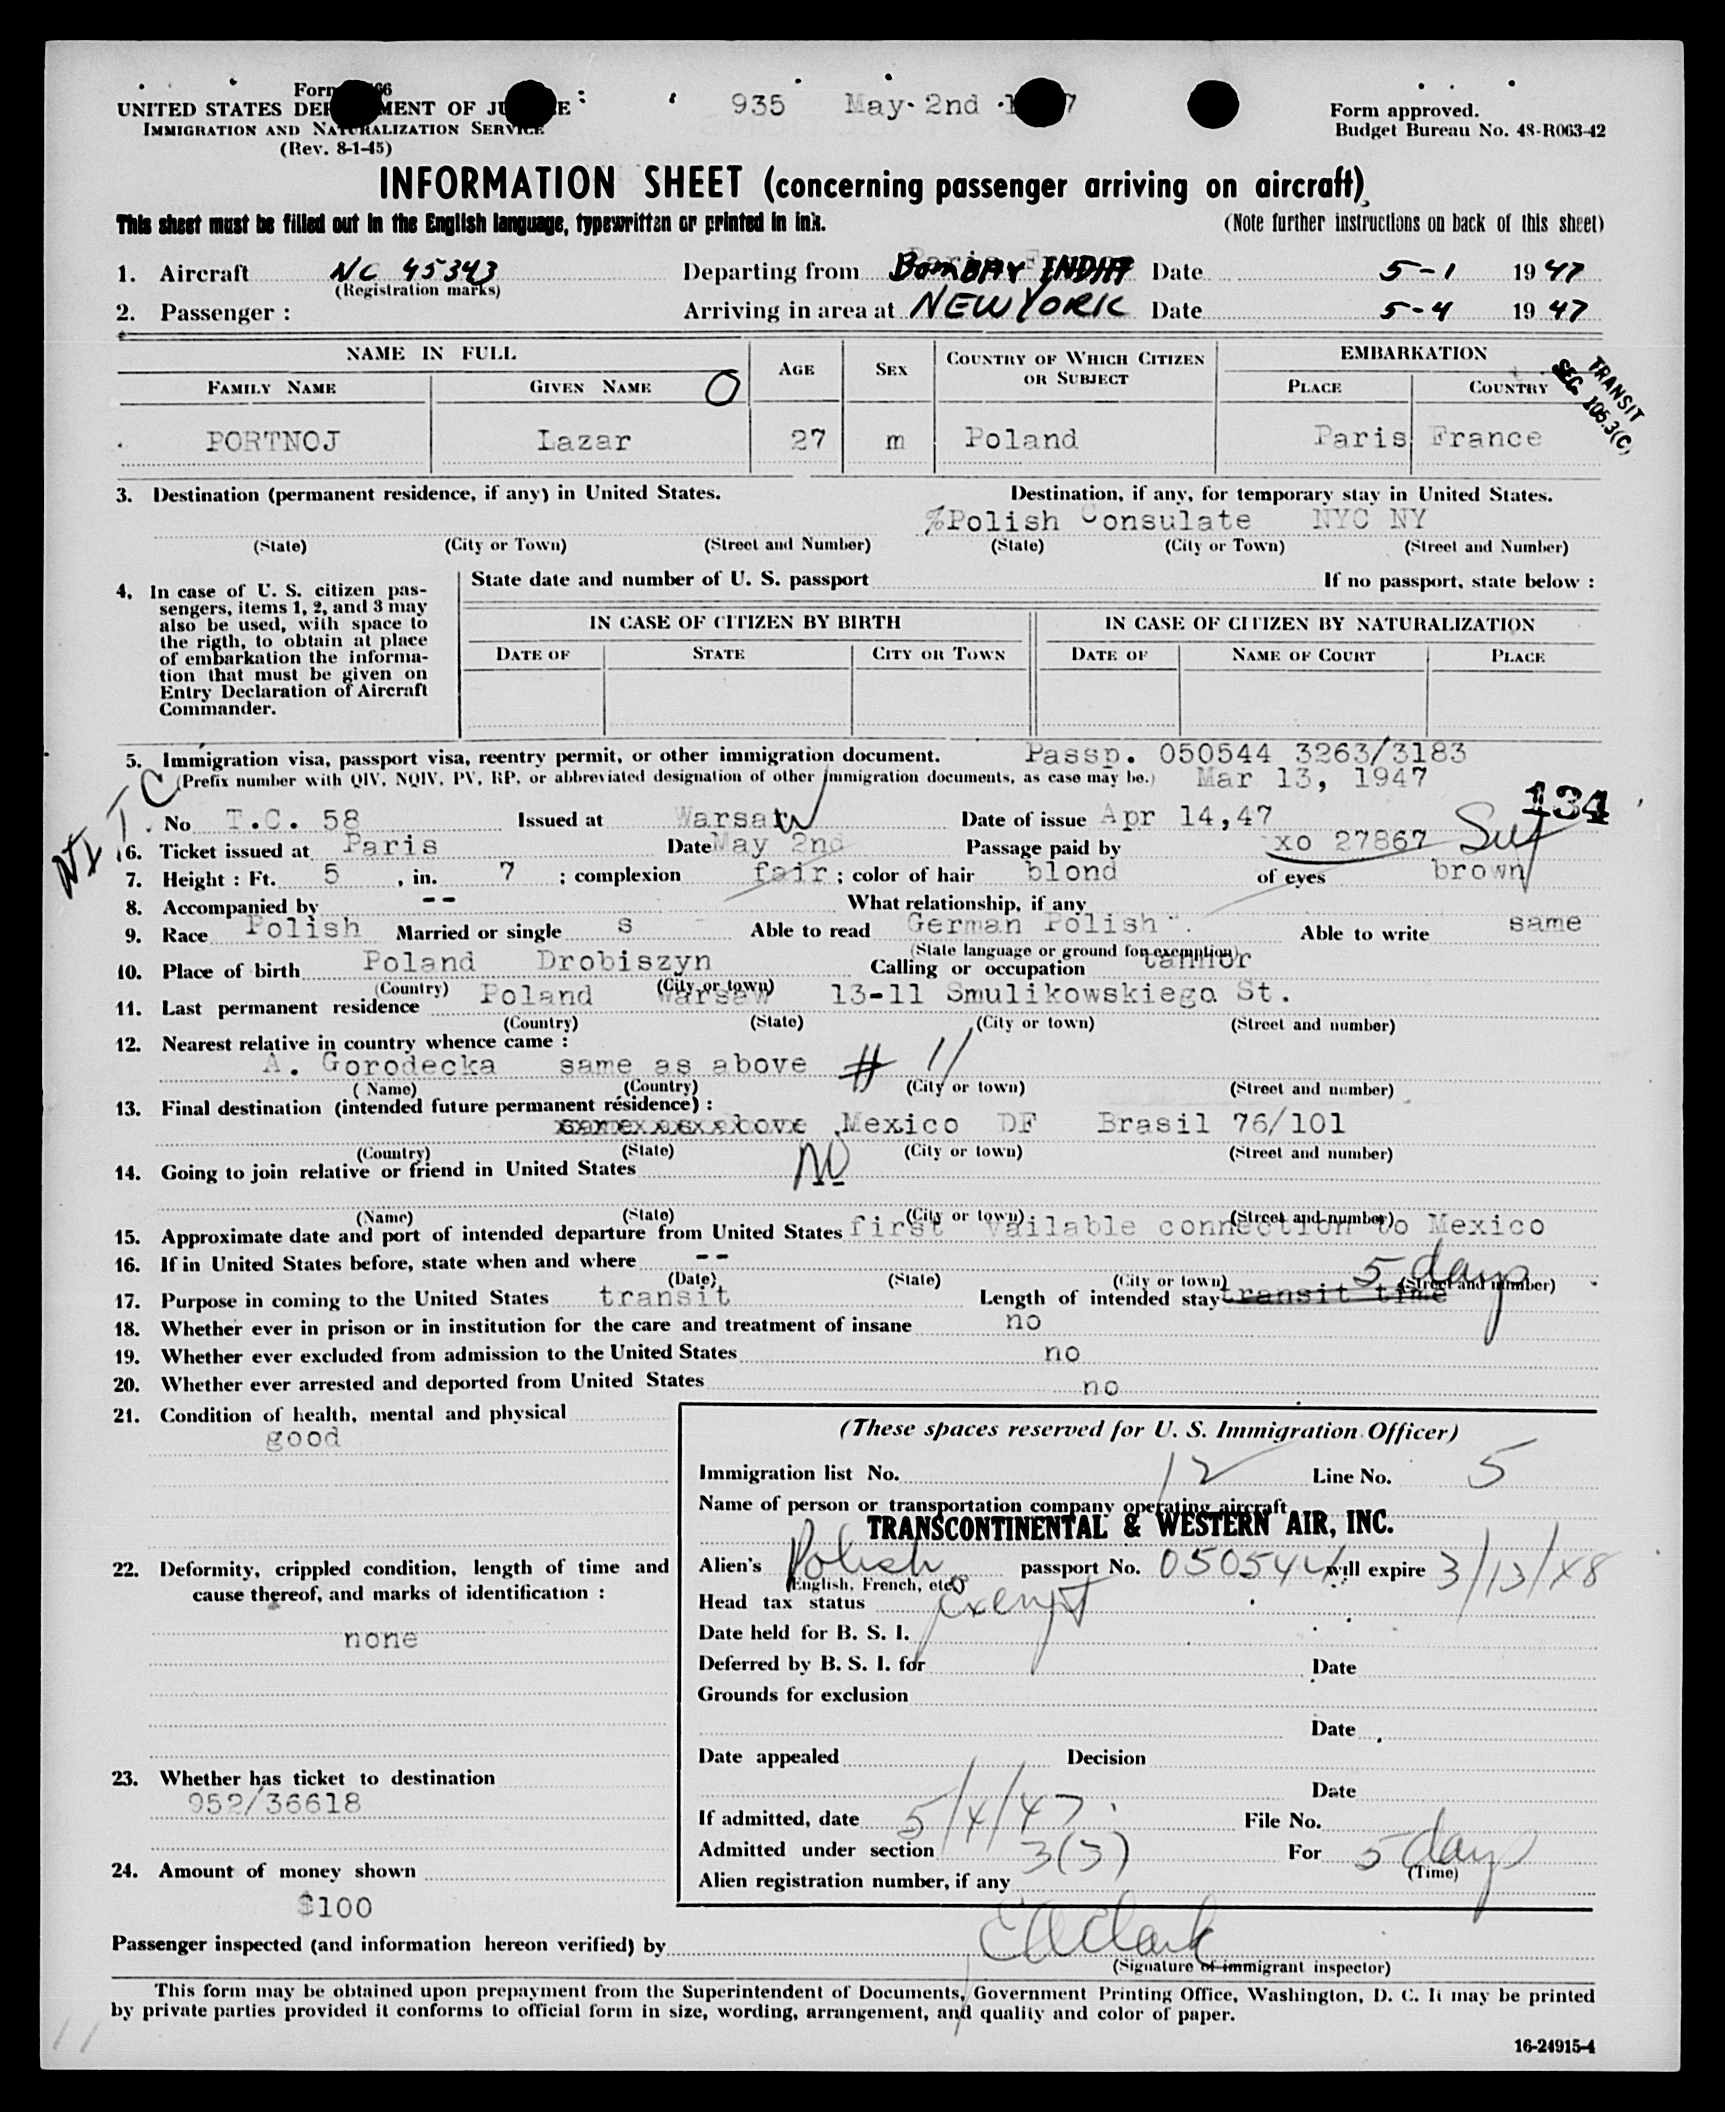 935 May 2nd
UNITED STATES DEPARTMENT OF JUSTICE
IMMIGRATION AND NATURALIZATION SERVICE
(Rev. 8-1-45)
Form approved.
Budget Bureau No. 48-R063-42
INFORMATION SHEET (concerning passenger arriving on aircraft)
This sheet must be filled out in the English language, typewritten or printed in ink. (Note further instructions on back of this sheet)
1. Aircraft NC 45343 Departing from BOMBAY INDIA Date 5-1 19 47
(Registration marks)
2. Passenger : Arriving in area at NEW YORK Date 5-4 19 47
NAME IN FULL AGE SEX COUNTRY OF WHICH CITIZEN OR SUBJECT EMBARKATION
FAMILY NAME GIVEN NAME O PLACE COUNTRY
TRANSIT
SEC. 105.3(C)
PORTNOJ Lazar 27 m Poland Paris France
3. Destination (permanent residence, if any) in United States. Destination, if any, for temporary stay in United States.
%Polish Consulate NYC NY
(State) (City or Town) (Street and Number) (State) (City or Town) (Street and Number)
4. In case of U. S. citizen pas-
sengers, items 1, 2, and 3 may
also be used, with space to
the rigth, to obtain at place
of embarkation the informa-
tion that must be given on
Entry Declaration of Aircraft
Commander.
State date and number of U. S. passport If no passport, state below :
IN CASE OF CITIZEN BY BIRTH IN CASE OF CITIZEN BY NATURALIZATION
DATE OF STATE CITY OR TOWN DATE OF NAME OF COURT PLACE
5. Immigration visa, passport visa, reentry permit, or other immigration document. Passp. 050544 3263/3183
(Prefix number with QIV, NQIV, PV, RP, or abbreviated designation of other immigration documents, as case may be.) Mar 13, 1947
134
No T.C. 58 Issued at Warsaw Date of issue Apr 14,47
6. Ticket issued at Paris Date May 2nd Passage paid by xo 27867
7. Height : Ft. 5 , in. 7 ; complexion fair ; color of hair blond of eyes brown
8. Accompanied by -- What relationship, if any
9. Race Polish Married or single s Able to read German Polish Able to write same
(State language or ground for exemption)
10. Place of birth Poland Drobiszyn Calling or occupation tannor
(Country) (City or town)
11. Last permanent residence Poland Warsaw 13-11 Smulikowskiego St.
(Country) (State) (City or town) (Street and number)
12. Nearest relative in country whence came :
A. Gorodecka same as above # 11
(Name) (Country) (City or town) (Street and number)
13. Final destination (intended future permanent résidence) :
same as above Mexico DF Brasil 76/101
(Country) (State) (City or town) (Street and number)
14. Going to join relative or friend in United States NO
(Name) (State) (City or town) (Street and number)
15. Approximate date and port of intended departure from United States first vailable connection to Mexico
16. If in United States before, state when and where --
(Date) (State) (City or town) (Street and number)
5 days
17. Purpose in coming to the United States transit Length of intended stay transit time
18. Whether ever in prison or in institution for the care and treatment of insane no
19. Whether ever excluded from admission to the United States no
20. Whether ever arrested and deported from United States no
21. Condition of health, mental and physical
good
22. Deformity, crippled condition, length of time and
cause thereof, and marks of identification :
none
23. Whether has ticket to destination
952/36618
24. Amount of money shown
$100
(These spaces reserved for U. S. Immigration Officer)
Immigration list No. 12 Line No. 5
Name of person or transportation company operating aircraft
TRANSCONTINENTAL & WESTERN AIR, INC.
Alien's Polish passport No. 050544 will expire 3/13/48
(English, French, etc.)
Head tax status exempt
Date held for B. S. I.
Deferred by B. S. I. for Date
Grounds for exclusion
Date
Date appealed Decision
Date
If admitted, date 5/4/47 File No.
Admitted under section 3(3) For 5 days
(Time)
Alien registration number, if any
Passenger inspected (and information hereon verified) by E A Clark
(Signature of immigrant inspector)
This form may be obtained upon prepayment from the Superintendent of Documents, Government Printing Office, Washington, D. C. It may be printed
by private parties provided it conforms to official form in size, wording, arrangement, and quality and color of paper.
11
16-24915-4